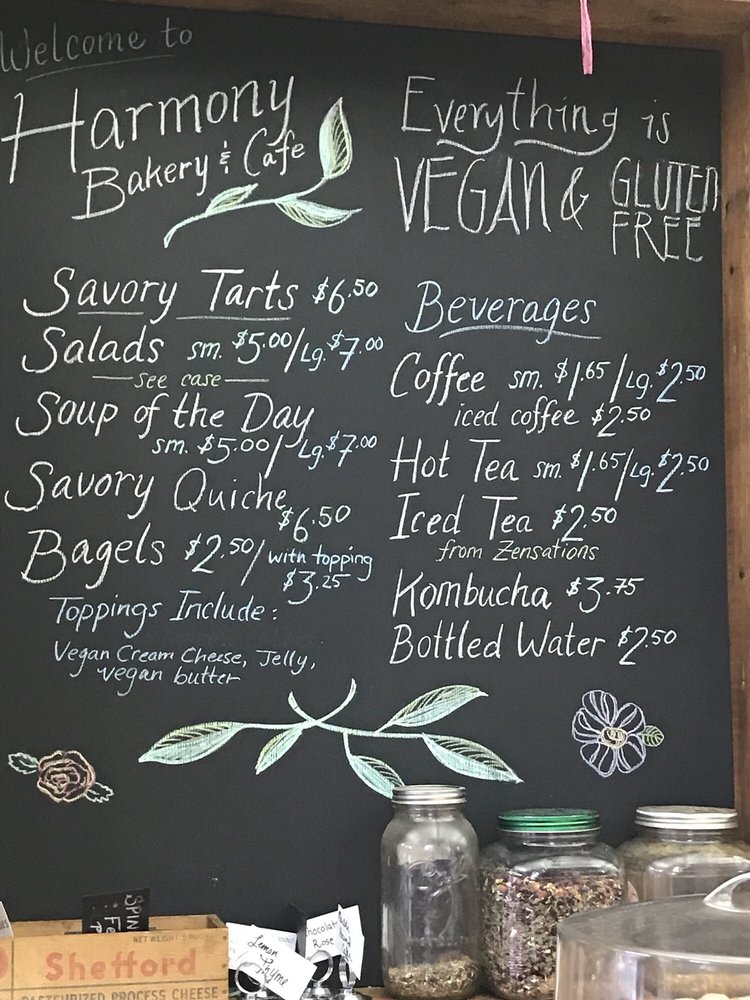 Welcome to
Harmony
Bakery & Cafe
Everything is
VEGAN & GLUTEN
FREE
Savory Tarts $6.50
Salads sm. $5.00/Lg. $7.00
see case
Soup of the Day
sm. $5.00/Lg. $7.00
Savory Quiche
$6.50
Bagels $2.50/with topping
$3.25
Toppings Include:
Vegan Cream Cheese, Jelly,
vegan butter
Beverages
Coffee sm. $1.65/Lg. $2.50
iced coffee $2.50
Hot Tea sm. $1.65/Lg. $2.50
Iced Tea $2.50
from Zensations
Kombucha $3.75
Bottled Water $2.50
NET WEIGHT
Shefford
PASTEURIZED PROCESS CHEESE
Lemon
Thyme
Rose